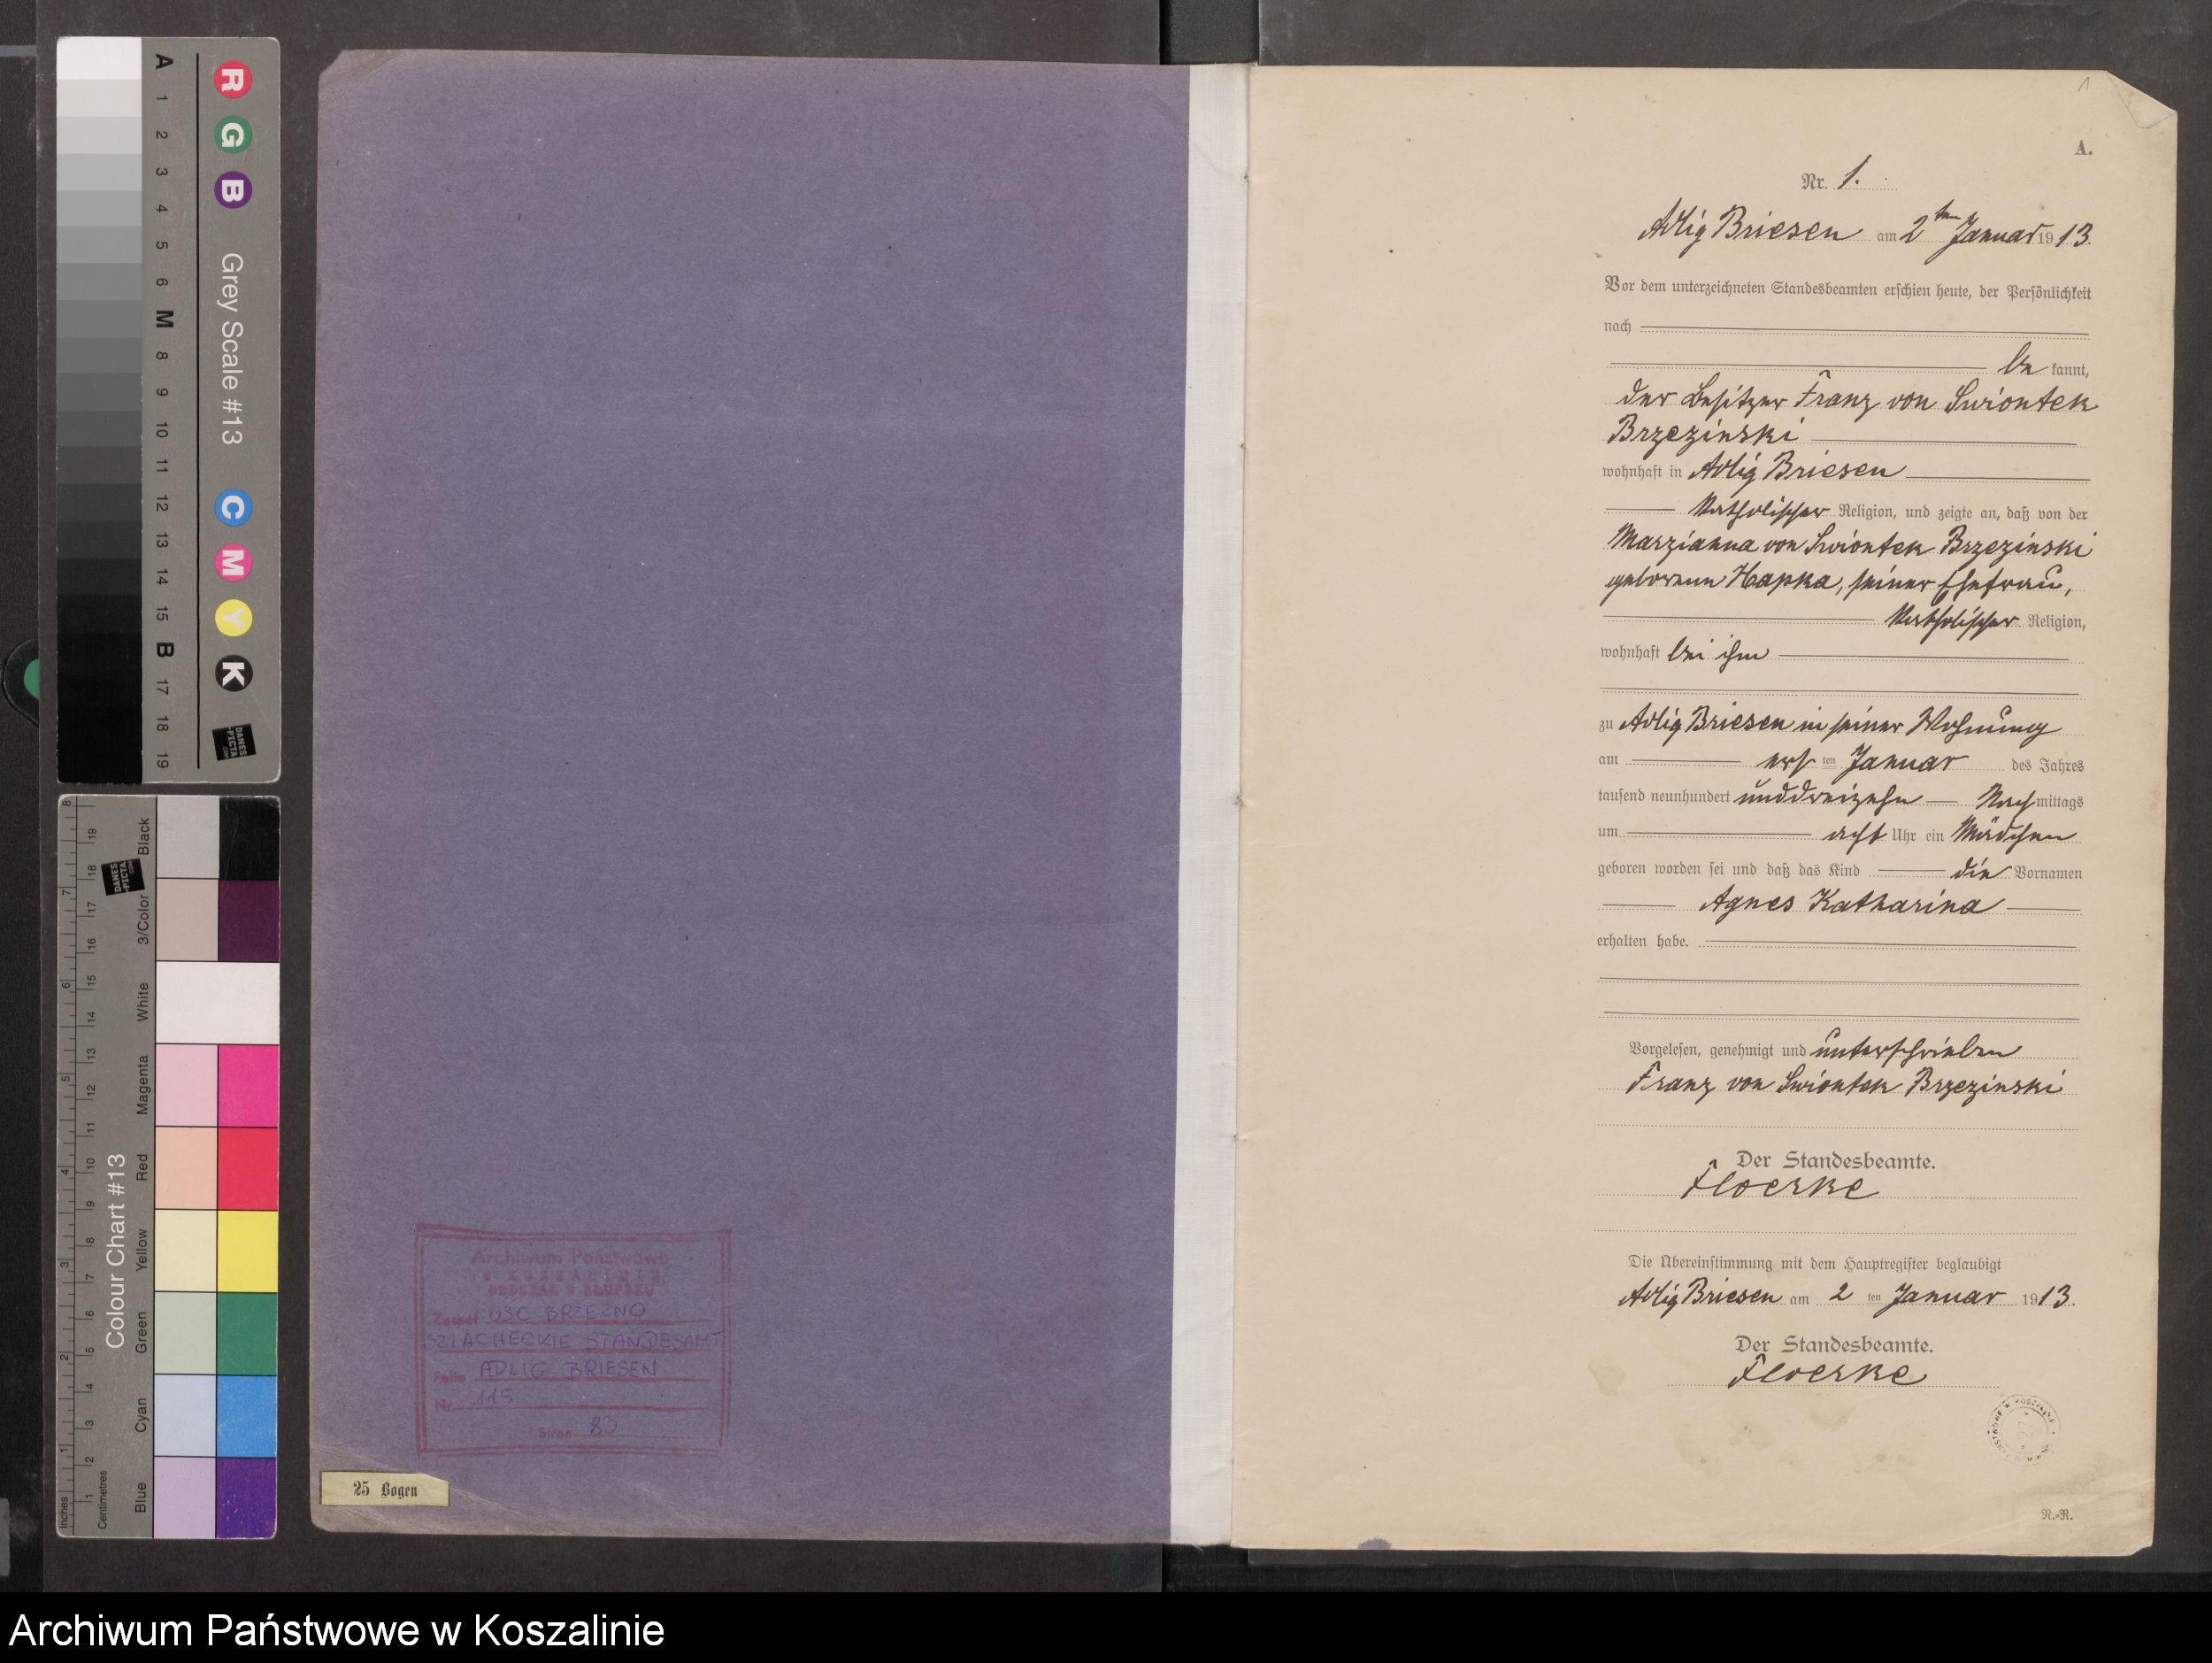 A 1 2 3 4 5 6 M 8 9 10 11 12 13 14 15 B 17 18 19
R G B Grey Scale #13 C M Y K
DANES
-PICTA
.COM
Colour Chart #13
Black
3/Color
White
Magenta
Red
Yellow
Green
Cyan
Blue
Inches
Centimetres
Archiwum Państwowe
w KOSZALINIE
ODDZIAŁ w SŁUPSKU
Zespół USC BRZEŹNO
SZLACHECKIE STANDESAMT
ADLIG BRIESEN
Nr 115
Stron 83
25 Bogen
1
A.
Nr. 1.
Adlig Briesen am 2ten Januar 1913.
Vor dem unterzeichneten Standesbeamten erschien heute, der Persönlichkeit
nach
be kannt,
der Besitzer Franz von Swiontek
Brzezinski
wohnhaft in Adlig Briesen
katholischer Religion, und zeigte an, daß von der
Marzianna von Swiontek Brzezinski
geborenen Hapka, seiner Ehefrau,
katholischer Religion,
wohnhaft bei ihm
zu Adlig Briesen in seiner Wohnung
am ersten Januar des Jahres
tausend neunhundert unddreizehn Nachmittags
um acht Uhr ein Mädchen
geboren worden sei und daß das Kind die Vornamen
Agnes Katharina
erhalten habe.
Vorgelesen, genehmigt und unterschrieben
Franz von Swiontek Brzezinski
Der Standesbeamte.
Floerke
Die Übereinstimmung mit dem Hauptregister beglaubigt
Adlig Briesen am 2 ten Januar 1913.
Der Standesbeamte.
Floerke
R.-R.
Archiwum Państwowe w Koszalinie